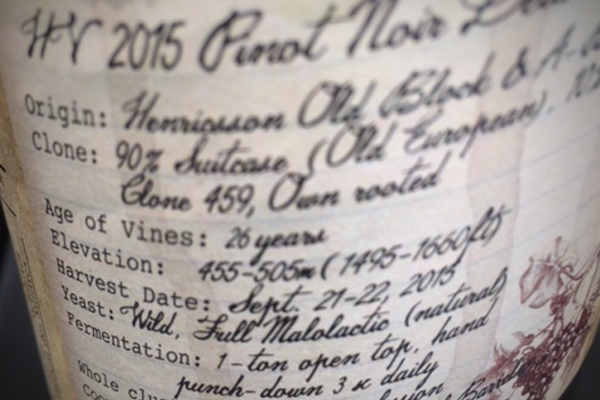 HV 2015 Pinot Noir
Origin: Henricsson Old Block &
Clone: 90% Suitcase (Old European).
Clone 459, Own rooted
Age of Vines: 26 years
Elevation: 455-505m (1495-1660ft)
Harvest Date: Sept. 21-22, 2015
Yeast: Wild, Full Malolactic (natural)
Fermentation: 1-ton open top, hand
punch-down 3 x daily
Whole